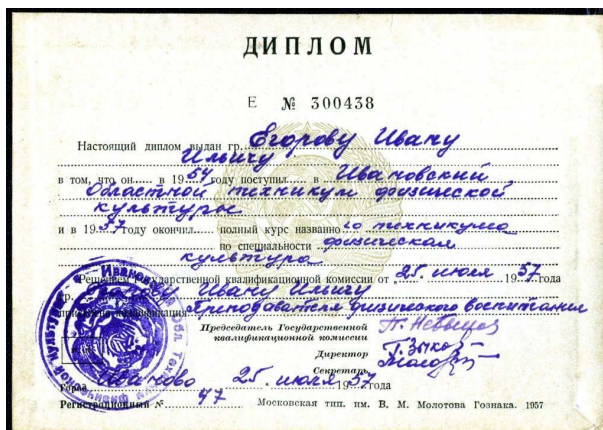 ДИПЛОМ
Е № 300438
Настоящий диплом выдан гр. Егорову Ивану
Ильичу
в том, что он в 1954 году поступил в Ивановский
Областной техникум физической
культуры
и в 1957 году окончил полный курс названного техникума
по специальности физическая
культура
Решением Государственной квалификационной комиссии от „25. июля 1957 года
гр. Ивану Ильичу
квалификация преподавателя физического воспитания
Председатель Государственной
квалификационной комиссии
Директор
Секретарь
Город Иваново 25. июля 1957 года
Регистрационный № 47
Московская тип. им. В. М. Молотова Гознака. 1957